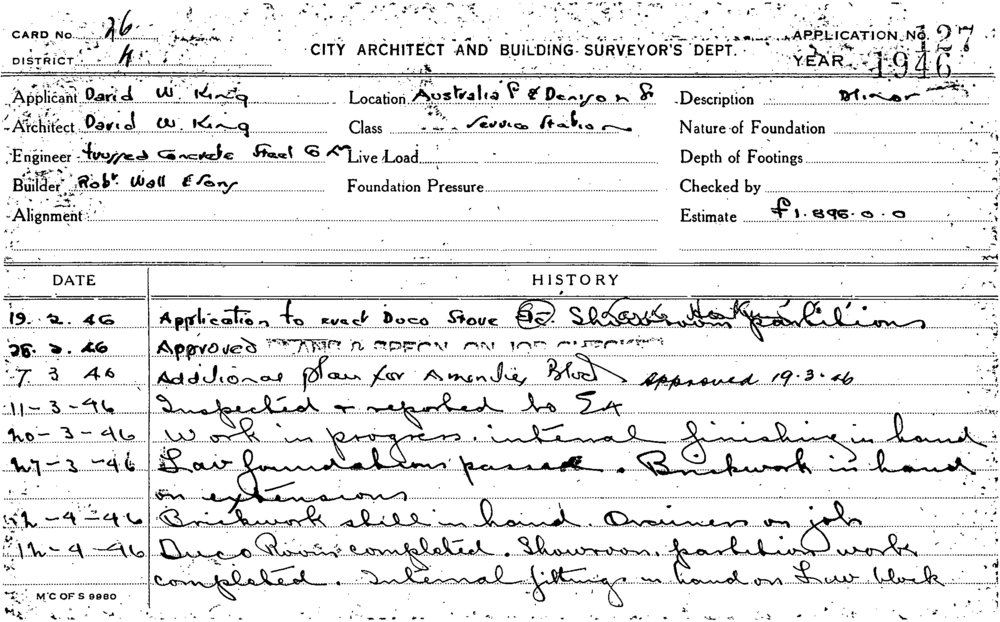 CARD No. 26
DISTRICT
CITY ARCHITECT AND BUILDING SURVEYOR'S DEPT.
APPLICATION No. 127
YEAR 1946
Applicant David W. King
Location Australia St & Denison St
Description Minor
Architect David W. King
Class Service Station
Nature of Foundation
Engineer Trussed Concrete Steel Co
Live Load
Depth of Footings
Builder Robt Wall & Sons
Foundation Pressure
Checked by
Alignment
Estimate £1.896.0.0
DATE HISTORY
19.2.46 Application to erect Duco Stove Showroom partitions
Approved PLANS & SPECN ON JOB CHECKED
7 3 46 Additional plan for Amenties Block approved 19.3.46
11-3-46 Inspected & reported to
20-3-46 Work in progress. internal finishing in hand
27-3-46 Lav foundations passed. Brickwork in hand
on extensions
-4-46 Brickwork still in hand. Drainers on job
12-4-46 Duco Room completed. Showroom partition work
completed. Internal fittings in hand on Lav block
M C OF S 9980